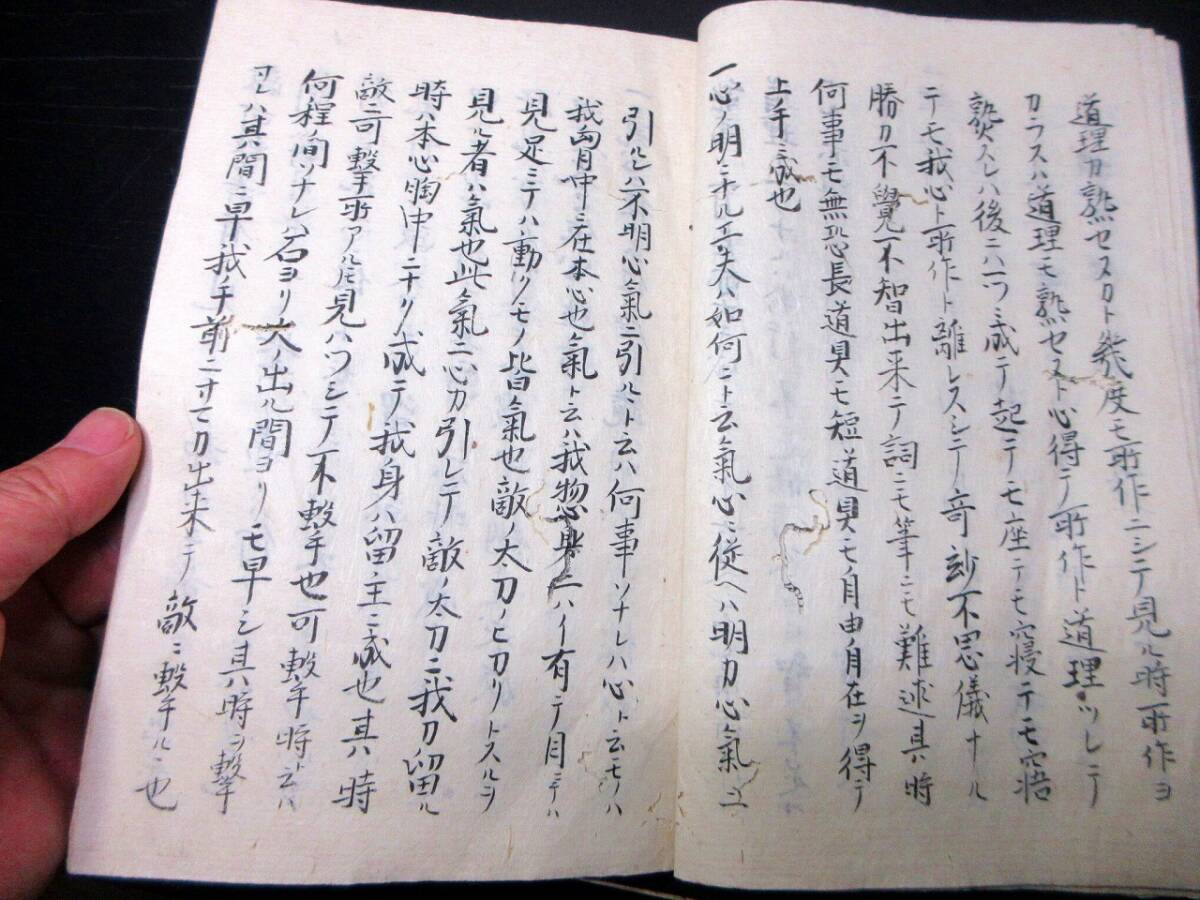 道理カ熟セスカト幾度モ所作ニシテ見ル時所作ヲ
カラスハ道理モ熟セスト心得テ所作ト道理ツレテ
熟スレハ後ニハ一ツニ成テ起テモ座テモ寝テモ寤
テモ我心ト所作ト離レスシテ奇玅不思儀ナル
勝カ不覚不智出来テ詞ニモ筆ニモ難述其時
何事モ無恐長道具モ短道具モノ自由ノ自在ヲ得テ
上手ニ成也
一心ノ明ニナル工夫ハ如何ニト云氣心ニ従ヘハ明カ心氣ニ
引ルレハ不明心氣ニ引ルヽト云ハ何事ソナレハ心ト云モノハ
我胸中ニ在本心也氣ト云ハ我惣身ニハイ有テ目ニテハ
見足ニテハ動クモノ皆氣也敵ノ太刀ノヒカリトスルヲ
見ル者ハ氣也此氣ニ心カ引レテ敵ノ太刀ニ我カ留ル
時ハ本心胸中ニナク成テ我身ハ留主ニ成也其時
敵ニ可撃所アルトモ見ハツシテ不撃也可撃時ト云ハ
何程ノ間ソナレハ石ヨリ火ノ出ル間ヨリモ早シ其時ヲ撃
レハ其間ニ早我手前ニスヽテカ出来テ敵ニ撃ルヽ也